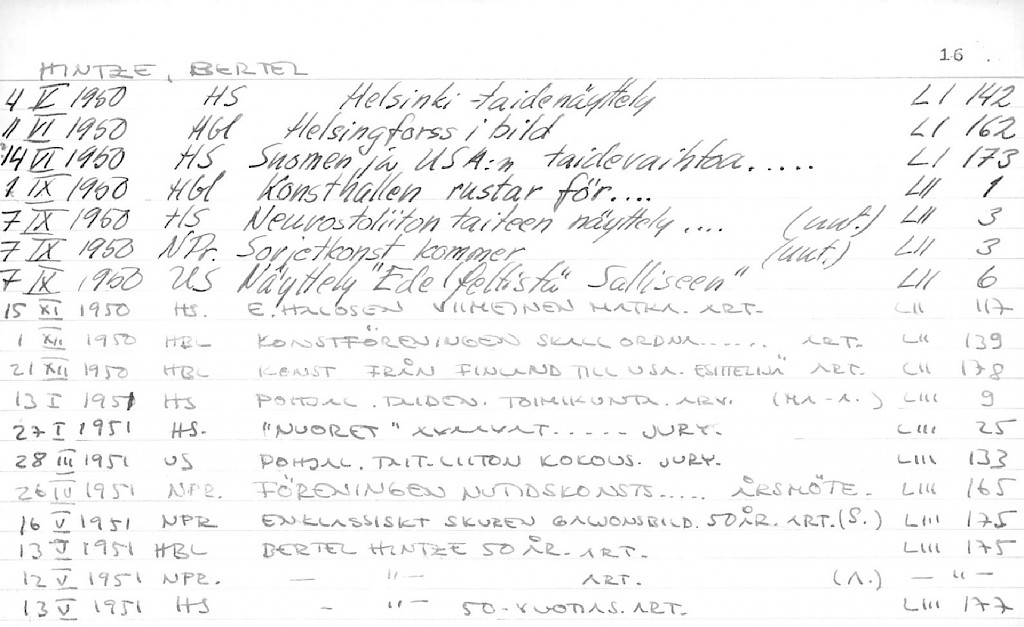 16
HINTZE, BERTEL
4 V 1950 HS Helsinki-taidenäyttely LI 142
11 VI 1950 Hbl Helsingforss i bild LI 162
14 VI 1950 HS Suomen ja USA:n taidevaihtoa..... LI 173
1 IX 1950 Hbl Konsthallen rustar för.... LII 1
7 IX 1950 HS Neuvostoliiton taiteen näyttely .... (uut.) LII 3
7 IX 1950 NPr. Sovjetkonst kommer (uut.) LII 3
7 IX 1950 US Näyttely "Edelfeltistä Salliseen" LII 6
15 XI 1950 HS. E. HALOSEN VIIMEINEN MATKA. ART. LII 117
1 XII 1950 HBL KONSTFÖRENINGEN SKALL ORDNA...... ART. LII 139
21 XII 1950 HBL KONST FRÅN FINLAND TILL USA. ESITTELIJÄ ART. LII 178
13 I 1951 HS POHJAL. TAIDEN. TOIMIKUNTA. ARV. (MA-A.) LIII 9
27 I 1951 HS. "NUORET" AVAAVAT..... JURY. LIII 25
28 III 1951 US POHJAL. TAIT-LIITON KOKOUS. JURY. LIII 133
26 IV 1951 NPR. FÖRENINGEN NUTIDSKONSTS..... ÅRSMÖTE. LIII 165
16 V 1951 NPR EN KLASSISKT SKUREN GALJONSBILD. 50 ÅR. ART. (S.) LIII 175
13 V 1951 HBL BERTEL HINTZE 50 ÅR. ART. LIII 175
12 V 1951 NPR. — "— ART. (A.) — "—
13 V 1951 HS — "— 50-VUOTIAS. ART. LIII 177